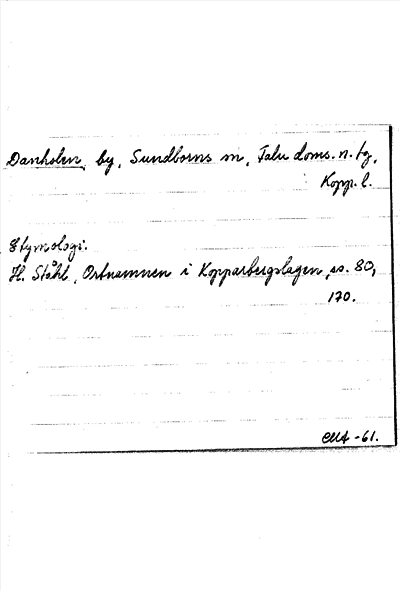 Danholen, by, Sundborns sn, Falu doms. n. tg,
Kopp. l.
Etymologi:
H. Ståhl, Ortnamnen i Kopparbergslagen, ss. 80,
170.
-61.